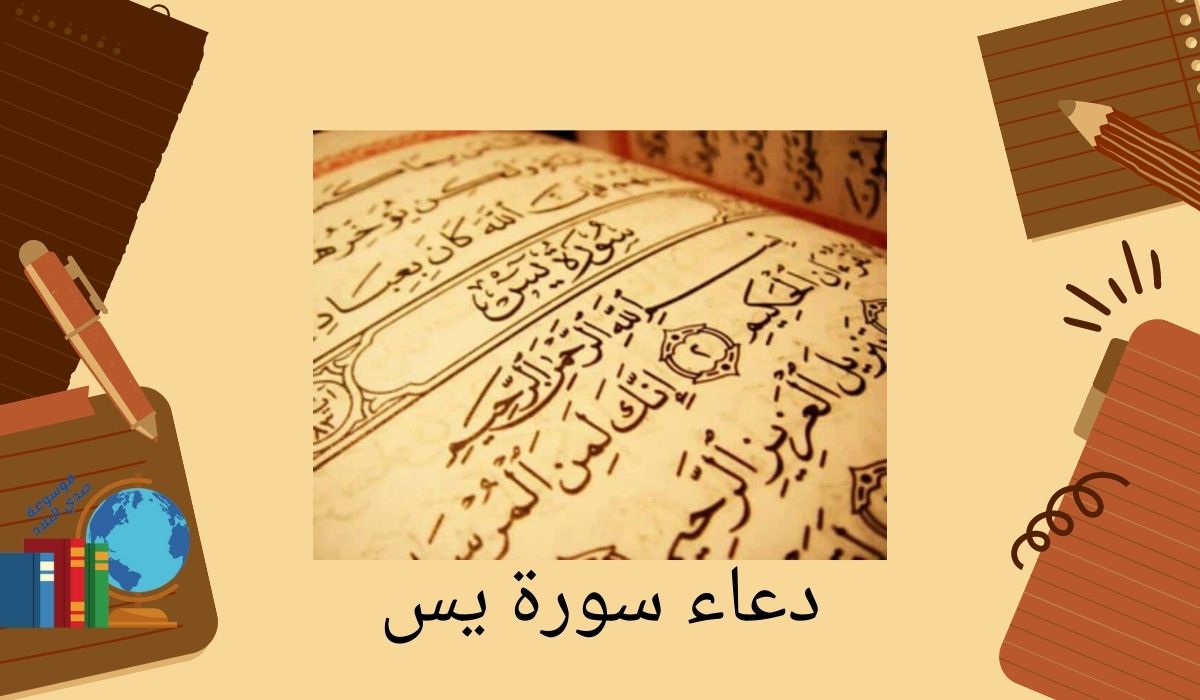 وَلَٰكِن يُؤَخِّرُهُ
فَإِنَّ ٱللَّهَ كَانَ بِعِبَادِ
سُورَةُ يسٓ
بِسْمِ ٱللَّهِ ٱلرَّحْمَٰنِ ٱلرَّحِيمِ
ٱلْحَكِيمِ ٢ إِنَّكَ لَمِنَ ٱلْمُرْسَ
تَنزِيلَ ٱلْعَزِيزِ ٱلرَّحِيمِ
موسوعة
صدى البلاد
دعاء سورة يس